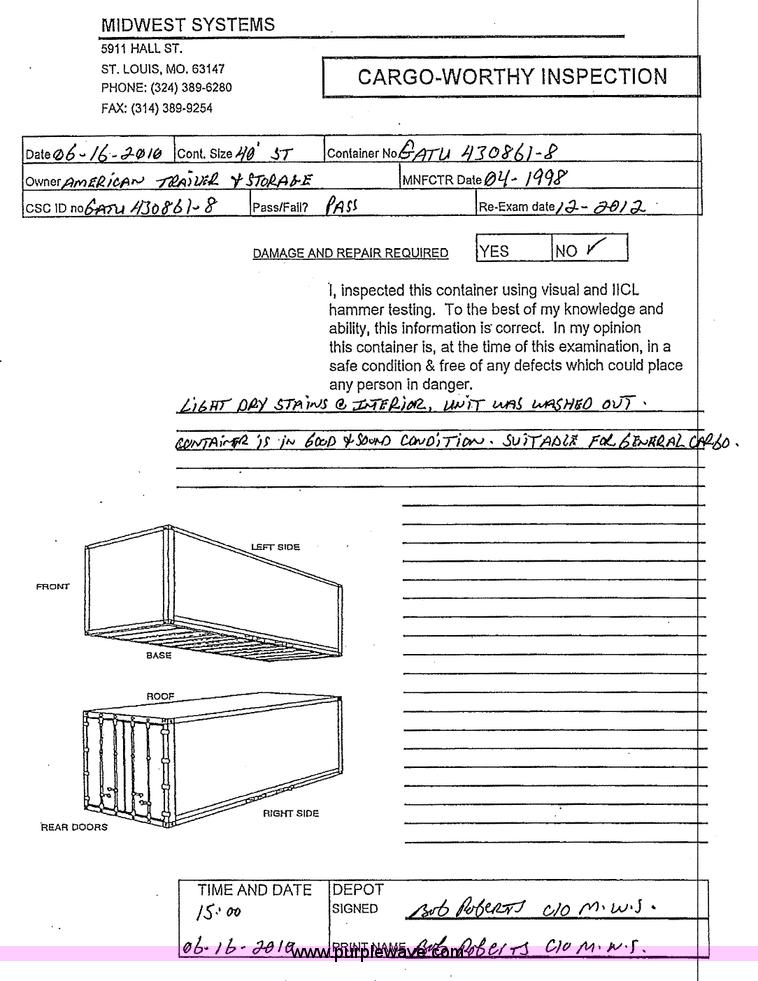 MIDWEST SYSTEMS
5911 HALL ST.
ST. LOUIS, MO. 63147
PHONE: (324) 389-6280
FAX: (314) 389-9254
CARGO-WORTHY INSPECTION
Date 06-16-2010 Cont. Size 40' ST Container No GATU 430861-8
Owner AMERICAN TRAILER & STORAGE MNFCTR Date 04-1998
CSC ID no GATU 430861-8 Pass/Fail? PASS Re-Exam date 12-2012
DAMAGE AND REPAIR REQUIRED YES NO ✓
I, inspected this container using visual and IICL
hammer testing. To the best of my knowledge and
ability, this information is correct. In my opinion
this container is, at the time of this examination, in a
safe condition & free of any defects which could place
any person in danger.
LIGHT DRY STAINS @ INTERIOR, UNIT WAS WASHED OUT.
CONTAINER IS IN GOOD & SOUND CONDITION. SUITABLE FOR GENERAL CARGO.
LEFT SIDE
FRONT
BASE
ROOF
RIGHT SIDE
REAR DOORS
TIME AND DATE DEPOT
15:00 SIGNED Bob Roberts C/O M.W.S.
06-16-2010 PRINT NAME Bob Roberts C/O M.W.S.
www.purplewave.com